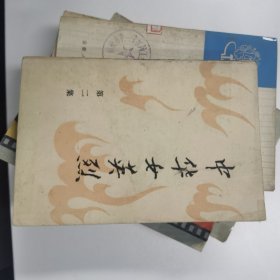 中华女英烈
第二集